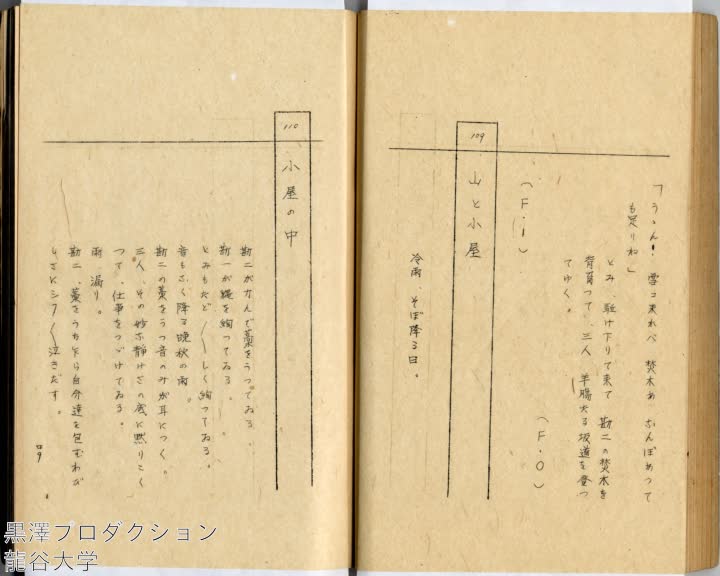 「うゝん！ 雪コ来れべ 焚木あ なんぼあつて
も足りね」
とみ 駈け下りて来て 勘二の焚木を
背負つて、三人 羊腸たる坂道を登つ
てゆく。
（F・O）
（F・i）
109 山と小屋
冷雨、そぼ降る日。
110 小屋の中
勘二がかんで藁をうつてゐる、
勘一が縄を綯つてゐる。
とみもたど／＼しく綯つてゐる。
音もなく降る晩秋の雨。
勘二の藁をうつ音のみが耳につく。
三人、その妙な静けさの底に黙りこく
つて、仕事をつづけてゐる。
雨漏り。
勘二、藁をうち乍ら自分達を包むわび
しさにシク／＼泣きだす。
49
黒澤プロダクション
龍谷大学